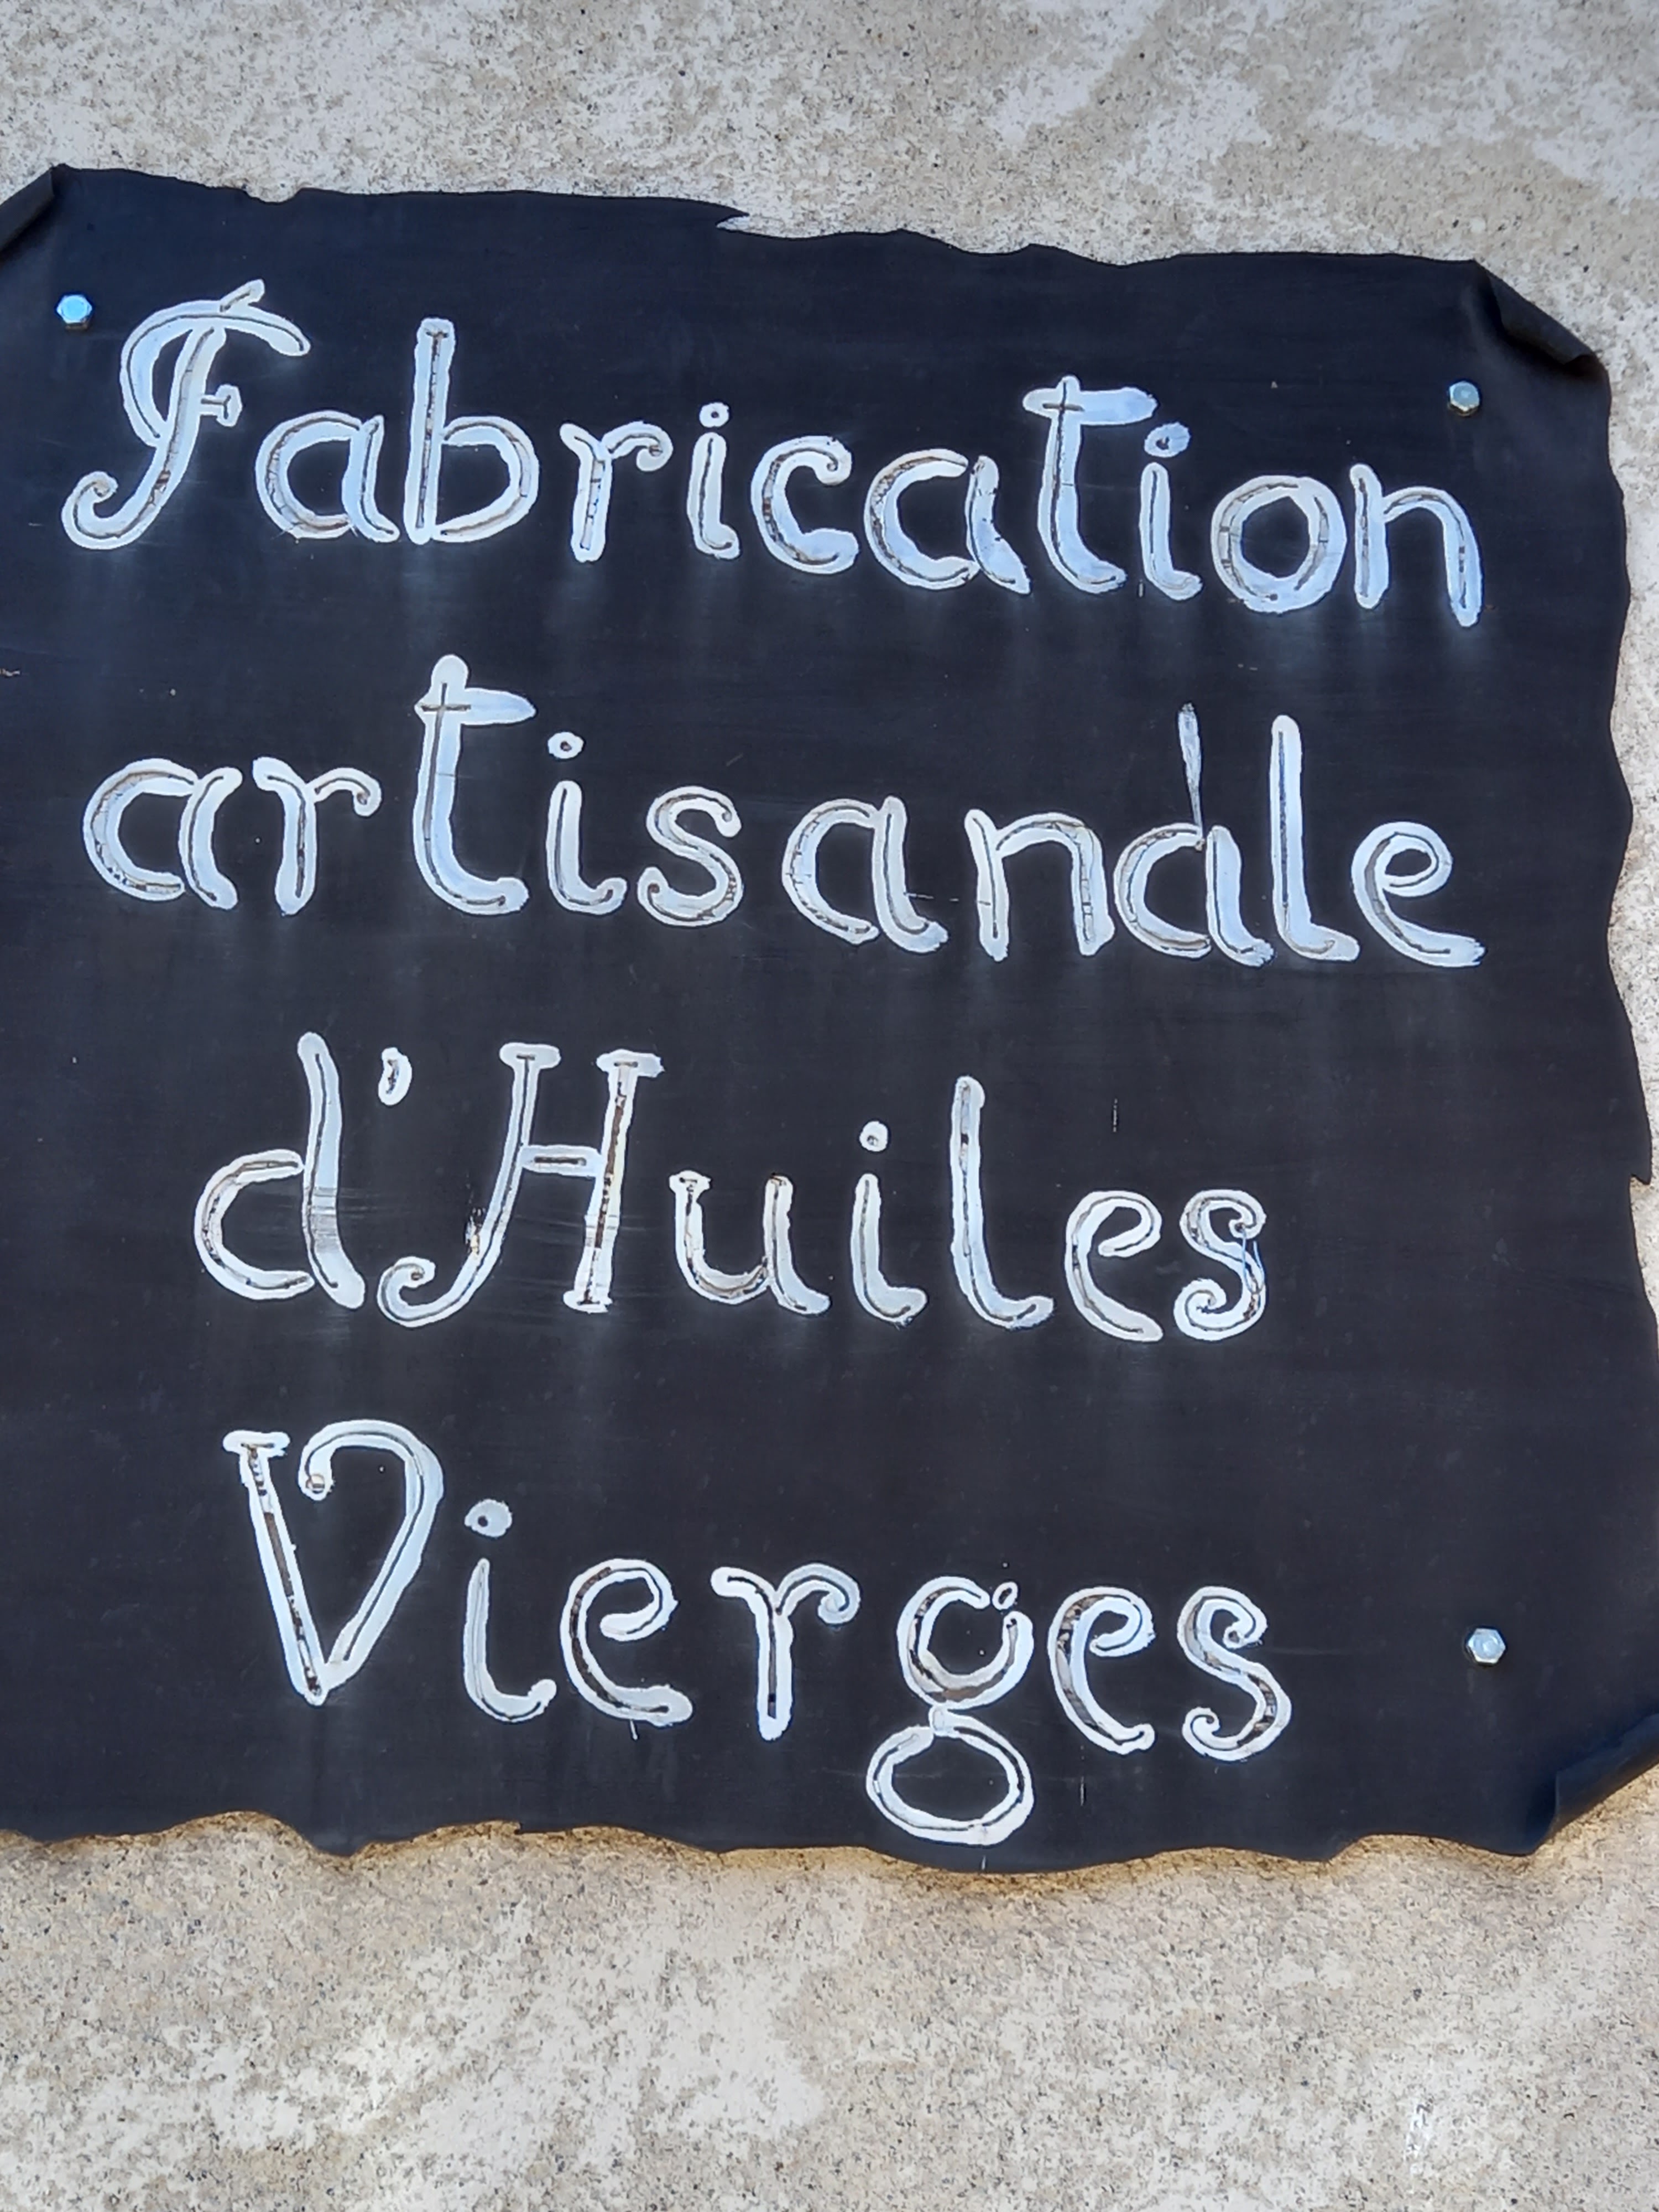 Fabrication
artisanale
d'Huiles
Vierges